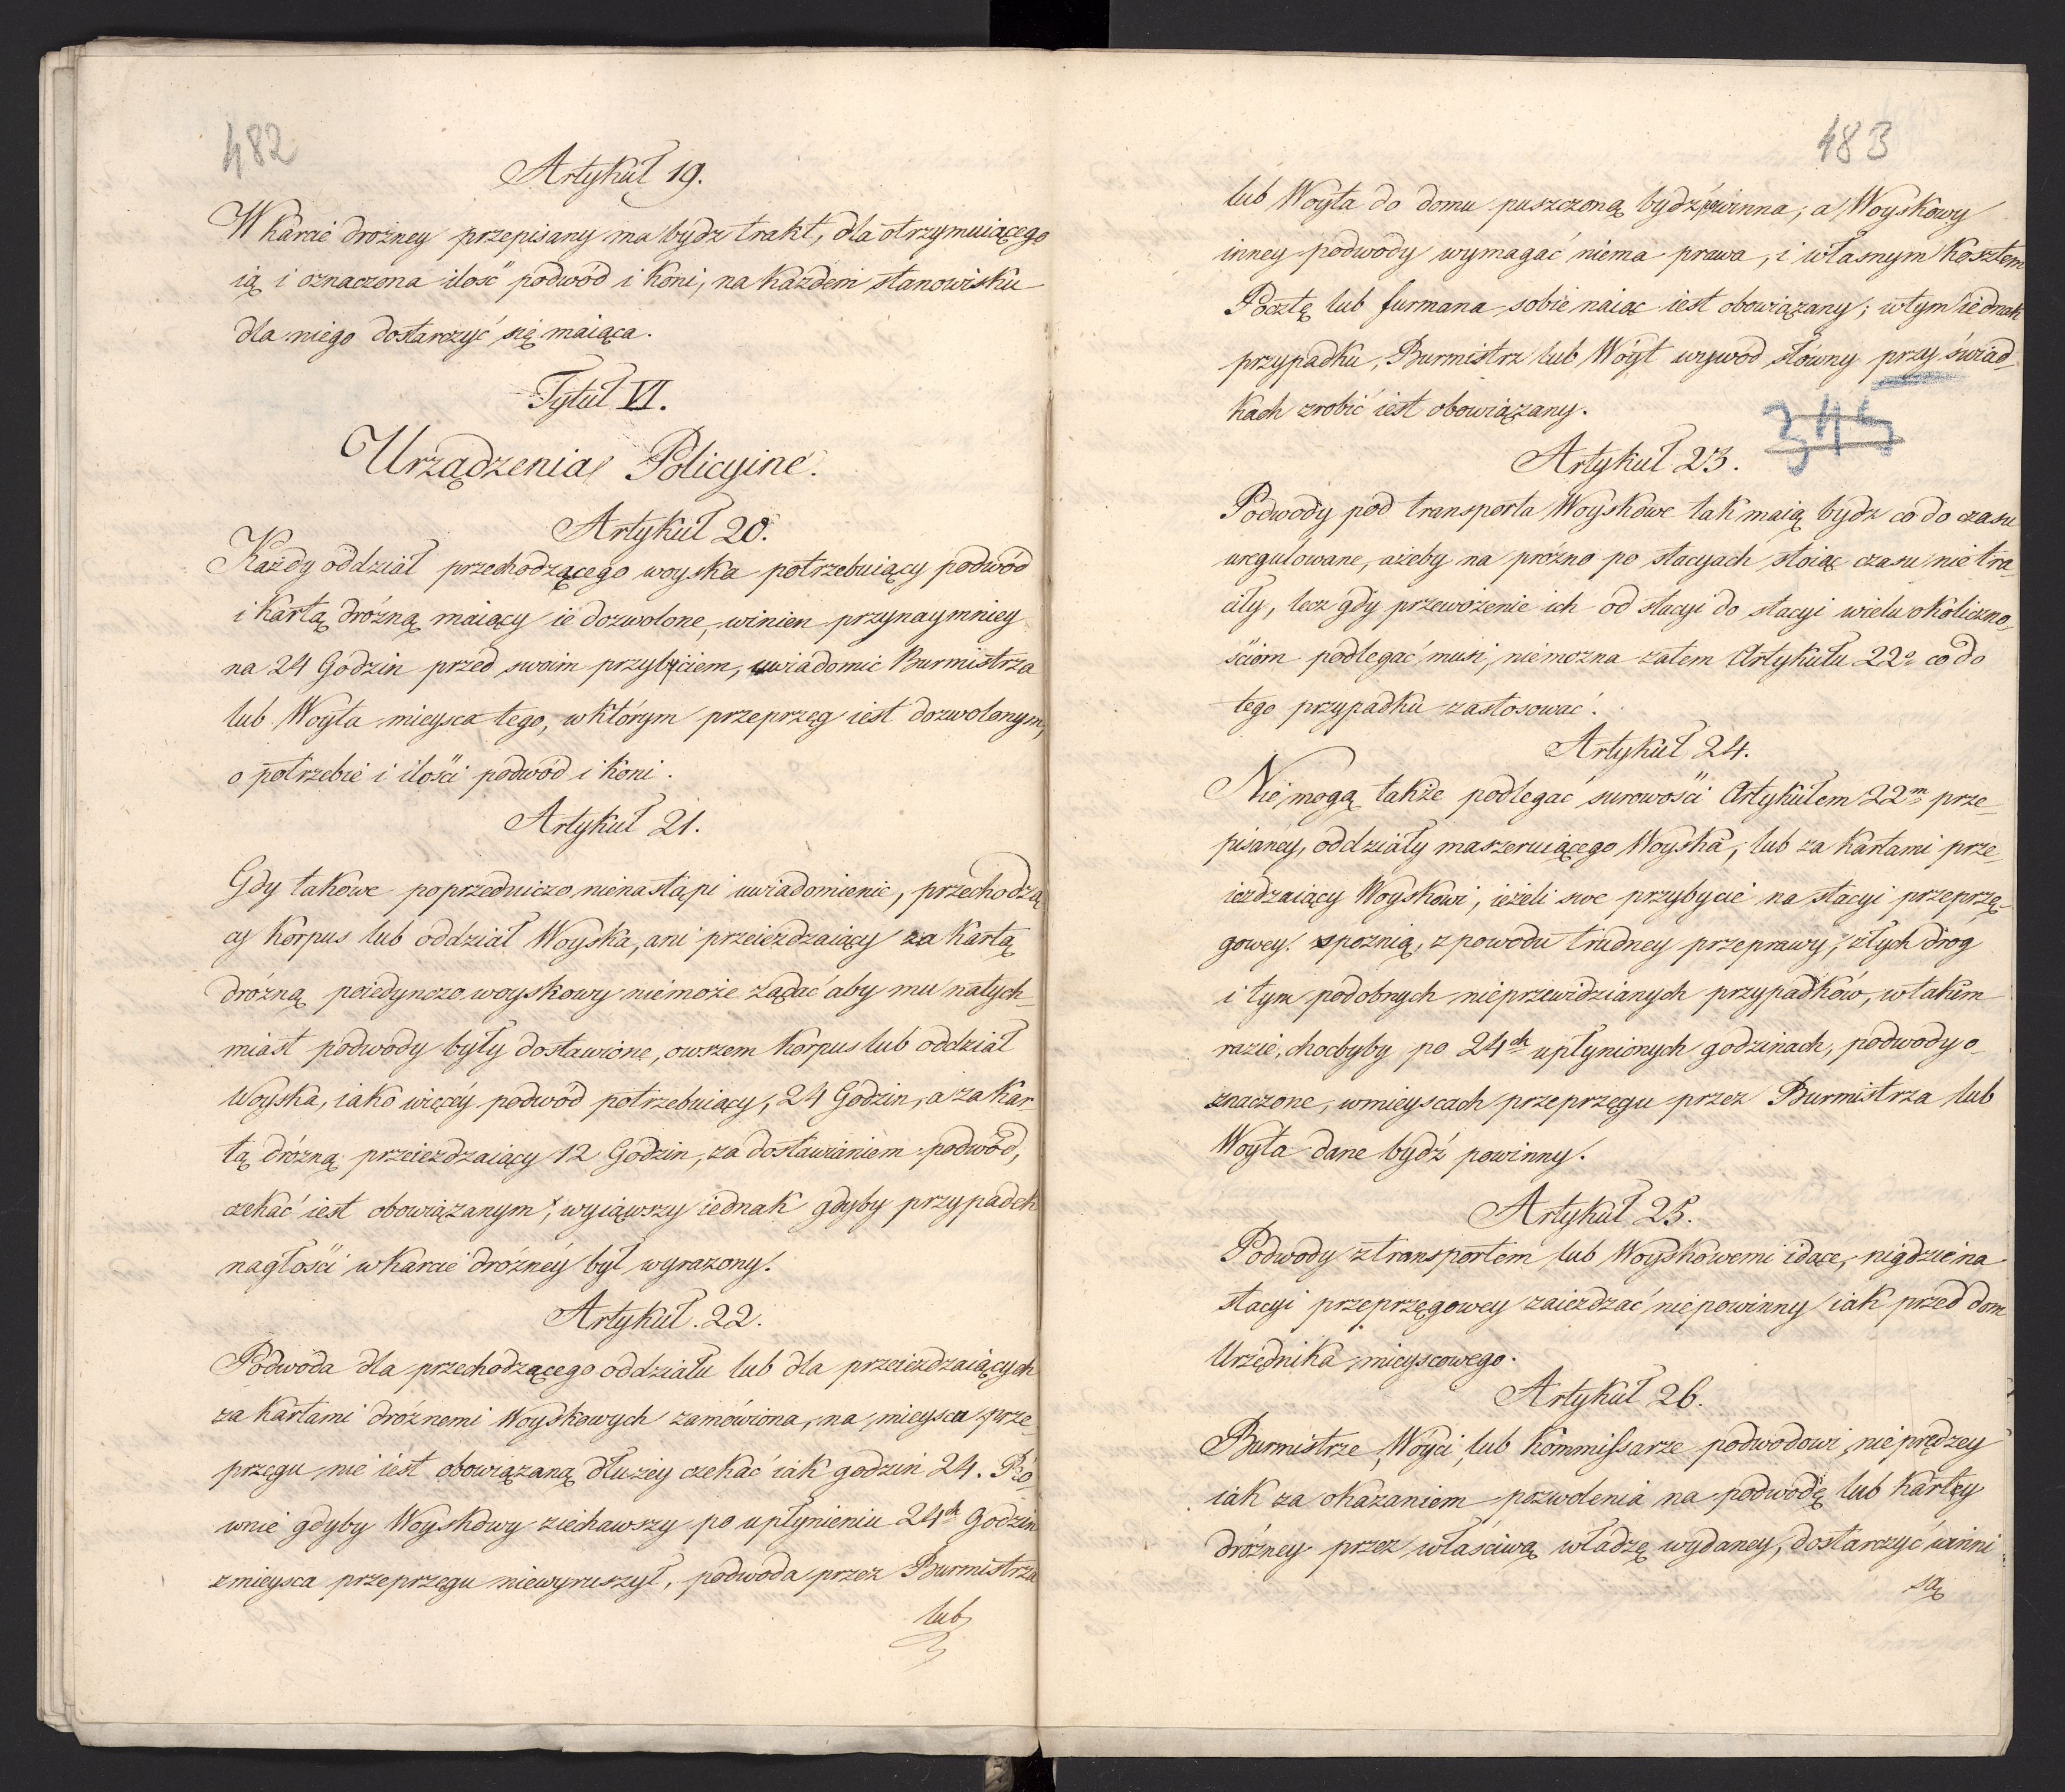 482
Artykuł 19.
W karcie drożney przepisany ma bydz trakt, dla otrzymuiącego
ią i oznaczona ilość podwód i koni, na każdem stanowisku
dla niego dostarczyć się maiąca.
Tytuł VI.
Urządzenia Policyine.
Artykuł 20.
Każdy oddział przechodzącego woyska potrzebuiący podwód
i kartą dróżną maiący ie dozwolone, winien przynaymniey
na 24 Godzin przed swoim przybyciem, uwiadomić Burmistrza
lub Woyta mieysca tego, wktórym przeprzęg iest dozwolonym,
o potrzebie i ilości podwód i koni.
Artykuł 21.
Gdy takowe poprzedniczo nienastąpi uwiadomienie, przechodzą
cy Korpus lub oddział Woyska, ani przeieżdzaiący za Kartą
dróżną poiedynczo woyskowy niemoże żądać aby mu natych_
miast podwody były dostawione, owszem korpus lub oddział
Woyska, iako więcéy podwód potrzebuiący, 24 Godzin, a za kar_
tą dróżną przeieżdzaiący 12 Godzin, za dostawianiem podwód,
czekać iest obowiązanym; wyiąwszy iednak gdyby przypadek
nagłości wkarcie dróżnéy był wyrazony.
Artykuł. 22.
Podwoda dla przechodzącego oddziału lub dla przeieżdzaiących
za kartami dróżnemi Woyskowych zamówiona, na mieysca prze_
przęgu nie iest obowiązaną dłużey czekać iak godzin 24. Ró_
wnie gdyby Woyskowy ziechawszy po upłynieniu 24ch Godzin
zmieysca przeprzęgu niewyruszył, podwoda przez Burmistrza
lub
483
lub Woyta do domu puszczoną bydź powinna; a Woyskowy
inney podwody wymagać niema prawa, i własnym Kosztem
Pocztę lub furmana sobie naiąć iest obowiązany; wtym iednak
przypadku, Burmistrz lub Wóyt wywód słówny przy świad_
kach zrobić iest obowiązany.
345
Artykuł 23.
Podwody pod transporta Woyskowe tak maią bydz co do czasu
uregulowane, ażeby na próżno po stacyach stoiąc czasu nie tra_
ciły, lecz gdy przewożenie ich od stacyi do stacyi wielu okoliczno_
ściom podlegać musi, niemożna zatem Artykułu 22o co do
tego przypadku zastosować.
Artykuł 24.
Nie mogą także podlegać surowości Artykułem 22m prze_
pisanéy, oddziały maszeruiącego Woyska, lub za kartami prze_
ieżdzaiący Woyskowi, ieżeli swe przybycie na stacyi przeprzę_
gowey spoznią, z powodu trudney przeprawy, złych dróg
i tym podobnych nieprzewidzianych przypadków, wtakim
razie, chocbyby po 24ch upłynionych godzinach, podwody o_
znaczone, wmieyscach przeprzęgu przez Burmistrza lub
Woyta dane bydź powinny.
Artykuł 25.
Podwody ztransportem lub Woyskowemi idące, nigdzie na
stacyi przeprzęgowey zaieżdzać niepowinny iak przed dom
Urzędnika mieyscowego.
Artykuł 26.
Burmistrze, Woyci, lub Kommissarze podwodowi, nieprędzey
iak za okazaniem pozwolenia na podwodę lub karty
dróżney przez właściwą władzę wydaney, dostarczyć winni
są